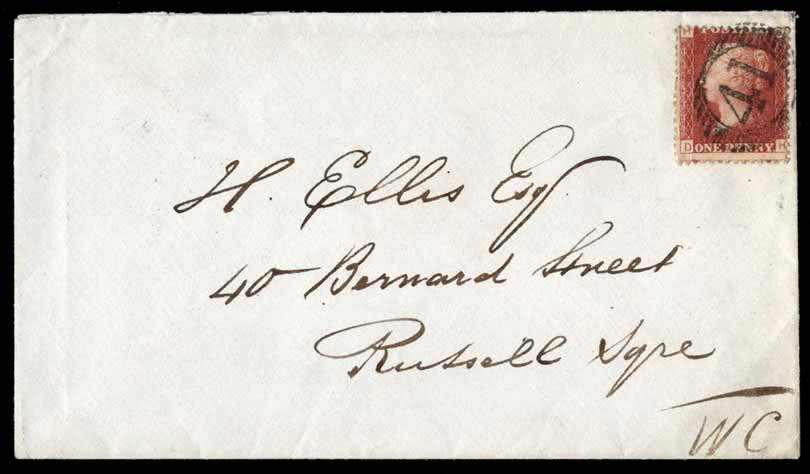 POSTAGE
41
D ONE PENNY K
H. Ellis Esq
40 Bernard Street
Russell Sqre
W C